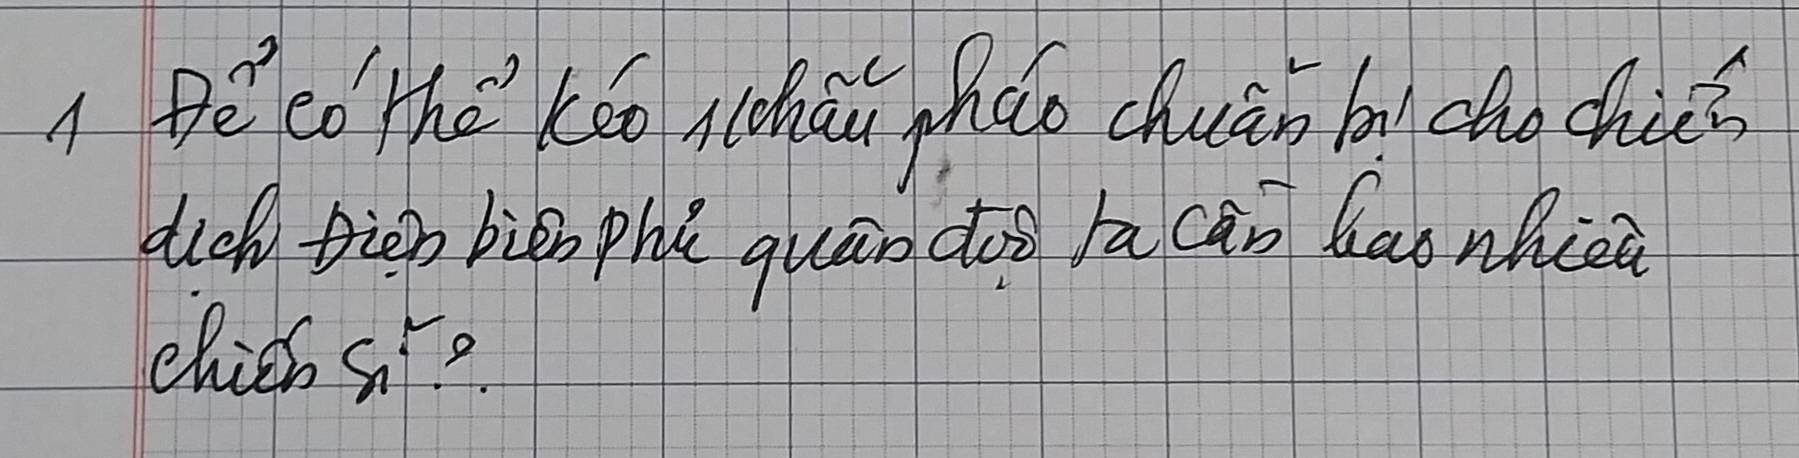 1 Để có thể kéo 1 khẩu pháo chuẩn bị cho chiến
dịch Điện biên phủ quân đội ta cần bao nhiêu
chiến sĩ ?.